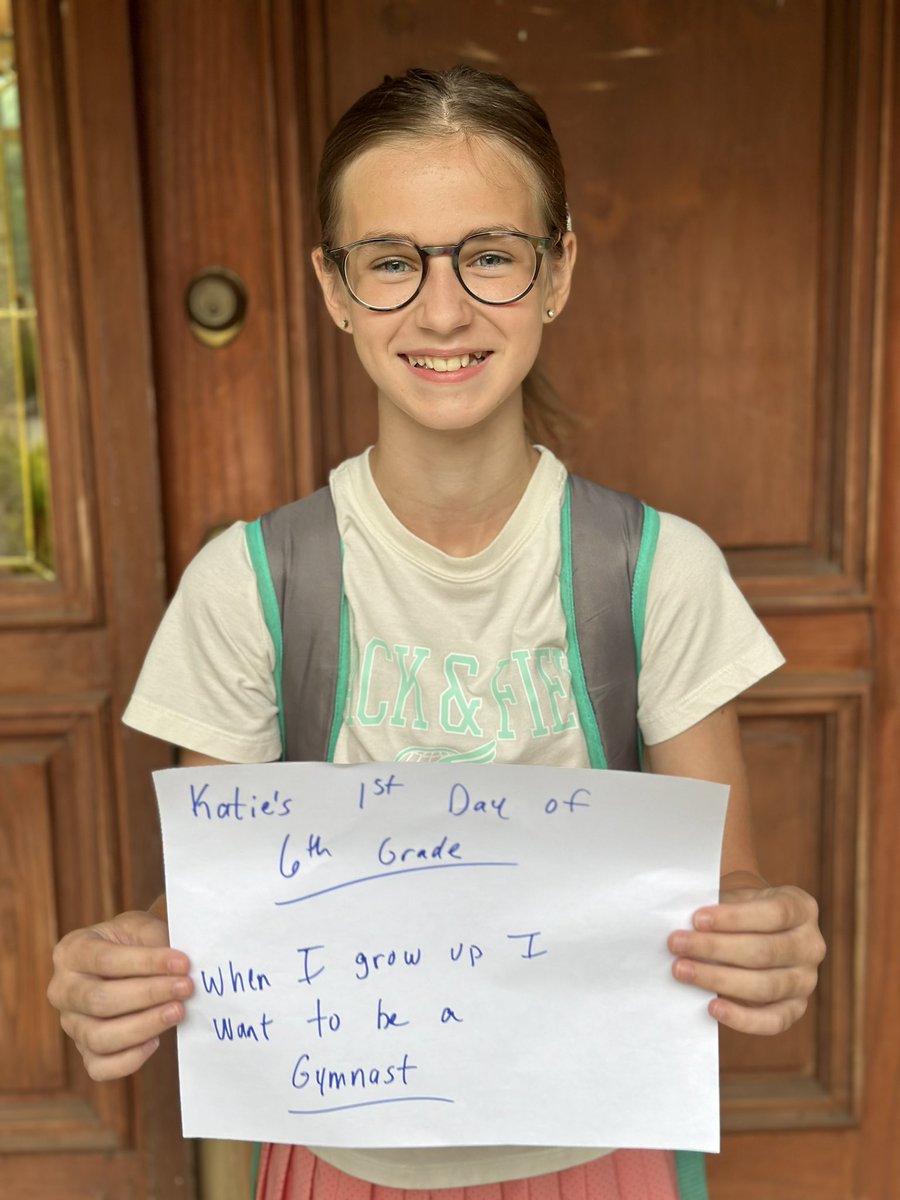 CK & FIE
Katie's 1st Day of
6th Grade
When I grow up I
Want to be a
Gymnast